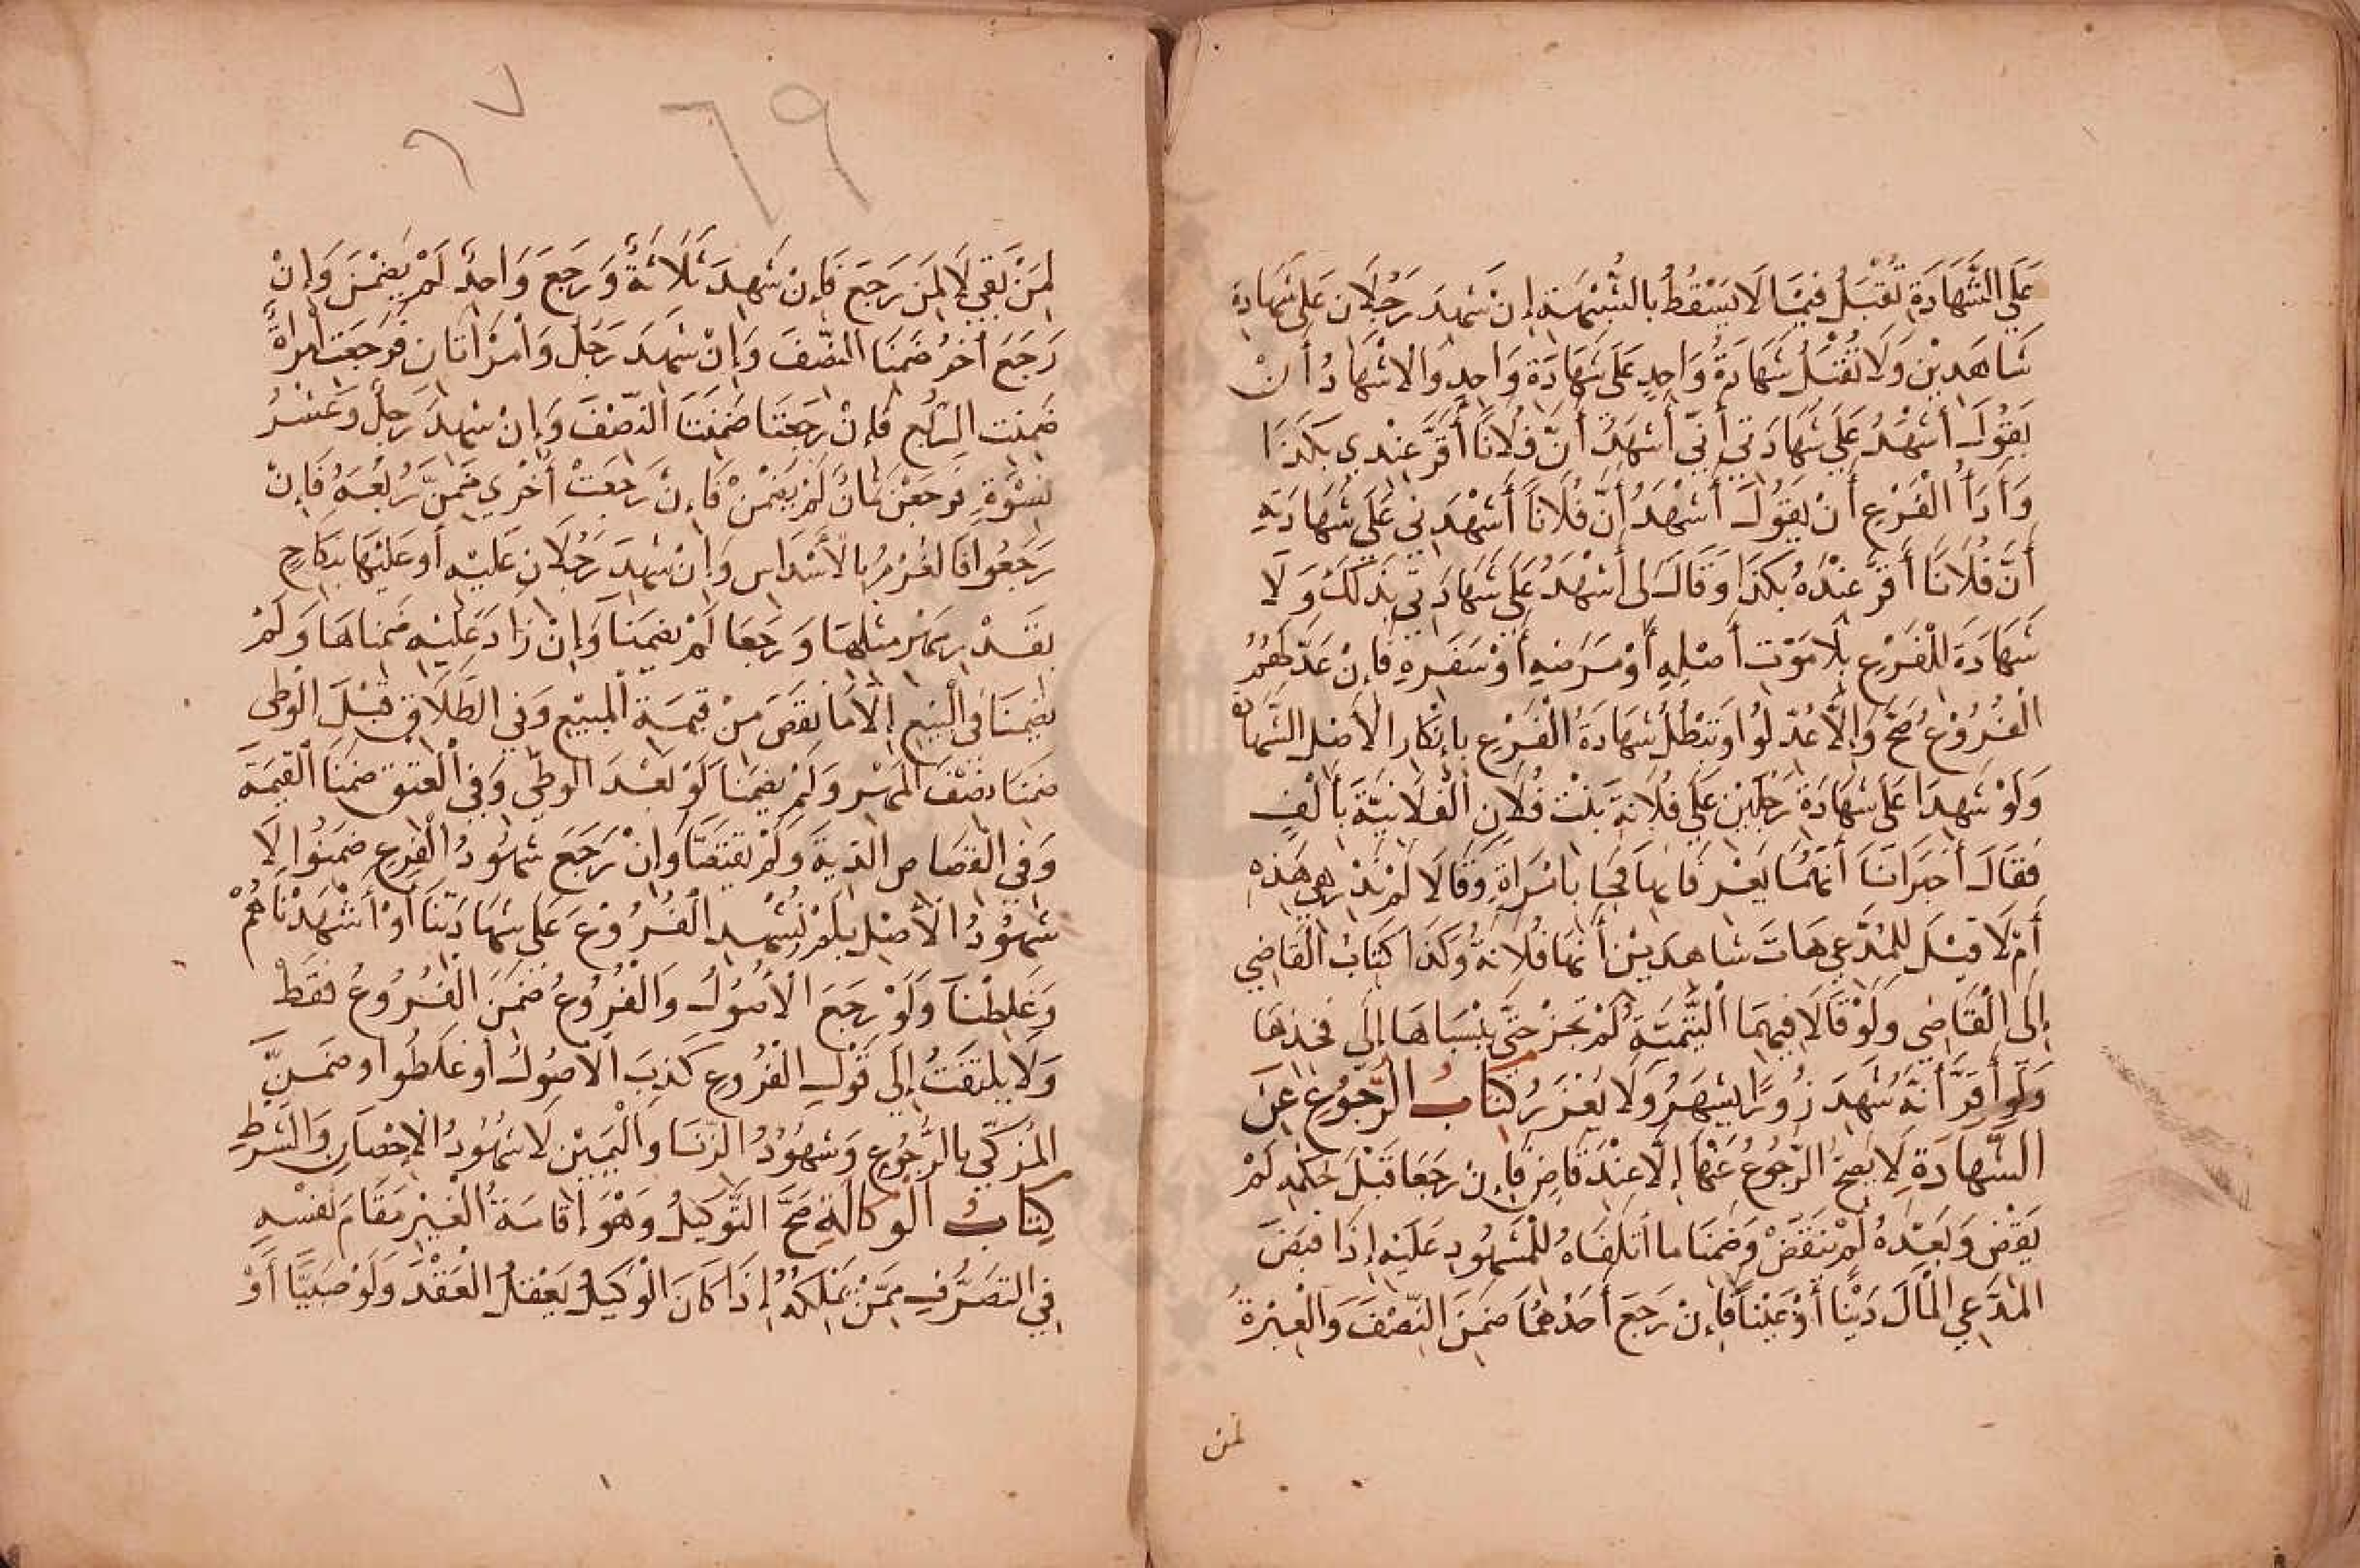 عَلَى الشَّهَادَةِ تُقْبَلُ فِيْمَا لَا يَسْقُطُ بِالشُّبْهَةِ إِنْ شَهِدَ رَجُلَانِ عَلَى شَهَادَةِ
شَاهِدَيْنِ وَلَا تُقْبَلُ شَهَادَةُ وَاحِدٍ عَلَى شَهَادَةِ وَاحِدٍ وَالْاِشْهَادُ أَنْ
يَقُولَ أَشْهَدُ عَلَى شَهَادَتِي أَنِّي أَشْهَدُ أَنَّ فُلَانًا أَقَرَّ عِنْدِي بِكَذَا
وَأَدَاءُ الْفَرْعِ أَنْ يَقُولَ أَشْهَدُ أَنَّ فُلَانًا أَشْهَدَنِي عَلَى شَهَادَتِهِ
أَنَّ فُلَانًا أَقَرَّ عِنْدَهُ بِكَذَا وَقَالَ لِي أَشْهَدُ عَلَى شَهَادَتِي بِذَلِكَ وَلَا
شَهَادَةَ لِلْفَرْعِ بِلَا مَوْتِ أَصْلِهِ أَوْ مَرَضِهِ أَوْ سَفَرِهِ فَإِنْ عَدَّلَهُمُ
الْفُرُوْعُ صَحَّ وَإِلَّا عُدِّلُوا وَتَبْطُلُ شَهَادَةُ الْفَرْعِ بِإِنْكَارِ الْأَصْلِ الشَّهَادَةَ
وَلَوْ شَهِدَا عَلَى شَهَادَةِ رَجُلَيْنِ عَلَى فُلَانَةَ بِنْتِ فُلَانِ الْفُلَانِيَّةِ بِأَلْفٍ
فَقَالَ أَخْبَرَانَا أَنَّهُمَا يَعْرِفَانِهَا فَجَا بِامْرَاةٍ وَقَالَا لَمْ نَدْرِ هِيَ هَذِهِ
أَمْ لَا قِيْلَ لِلْمُدَّعِي هَاتَ شَاهِدَيْنِ أَنَّهَا فُلَانَةُ وَكَذَا كِتَابُ الْقَاضِي
إِلَى الْقَاضِي وَلَوْ قَالَا فِيْهِمَا التَّمِيْمِيَّةُ لَمْ تَجُزْ حَتَّى يَنْسِبَاهَا إِلَى فَخِذِهَا
وَلَوْ أَقَرَّ أَنَّهُ شَهِدَ زُوْرًا يُشْهَرُ وَلَا يُعَزَّرُ كِتَابُ الرُّجُوْعِ عَنِ
الشَّهَادَةِ لَا يَصِحُّ الرُّجُوعُ عَنْهَا إِلَّا عِنْدَ قَاضٍ فَإِنْ رَجَعَا قَبْلَ حُكْمِهِ لَمْ
يَقْضِ وَبَعْدَهُ لَمْ يَنْقُضْ وَضَمِنَا مَا أَتْلَفَاهُ لِلْمَشْهُودِ عَلَيْهِ إِذَا قَبَضَ
الْمُدَّعِي الْمَالَ دَيْنًا أَوْ عَيْنًا فَإِنْ رَجَعَ أَحَدُهُمَا ضَمِنَ النِّصْفَ وَالْعِبْرَةُ
لمن
٦٩
لِمَنْ بَقِيَ لَا لِمَنْ رَجَعَ فَإِنْ شَهِدَ ثَلَاثَةٌ وَرَجَعَ وَاحِدٌ لَمْ يَضْمَنْ وَإِنْ
رَجَعَ أٰخَرُ ضَمِنَا النِّصْفَ وَإِنْ شَهِدَ رَجُلٌ وَامْرَأَتَانِ فَرَجَعَتْ امْرَأَةٌ
ضَمِنَتِ الرُّبُعَ فَإِنْ رَجَعَتَا ضَمِنَتَا النِّصْفَ وَإِنْ شَهِدَ رَجُلٌ وَعَشْرُ
نِسْوَةٍ فَرَجَعْنَ ثَمَانٌ لَمْ يَضْمَنَّ فَإِنْ رَجَعَتْ أُخْرَى ضَمِنَّ رُبُعَهُ فَإِنْ
رَجَعُوا فَالْغُرْمُ بِالْأَسْدَاسِ وَإِنْ شَهِدَ رَجُلَانِ عَلَيْهِ أَوْ عَلَيْهَا بِنِكَاحٍ
بِقَدْرِ مَهْرِ مِثْلِهَا وَرَجَعَا لَمْ يَضْمَنَا وَإِنْ زَادَ عَلَيْهِ ضَمِنَاهَا وَلَمْ
يَضْمَنَا فِي الْبَيْعِ إِلَّا مَا نَقَصَ مِنْ قِيْمَةِ الْمَبِيْعِ وَفِي الطَّلَاقِ قَبْلَ الْوَطْيِ
ضَمِنَا نِصْفَ الْمَهْرِ وَلَمْ يَضْمَنَا لَوْ بَعْدَ الْوَطْيِ وَفِي الْعِتْقِ ضَمِنَا الْقِيْمَةَ
وَفِي الْقِصَاصِ الدِّيَةَ وَلَمْ يُقْتَصَّا وَإِنْ رَجَعَ شُهُوْدُ الْفَرْعِ ضَمِنُوا لَا
شُهُوْدُ الْأَصْلِ بِلَمْ نُشْهِدِ الْفُرُوْعَ عَلَى شَهَادَتِنَا أَوْ أَشْهَدْنَاهُمْ
وَغَلِطْنَا وَلَوْ رَجَعَ الْأُصُوْلُ وَالْفُرُوْعُ ضَمِنَ الْفُرُوْعُ فَقَطْ
وَلَا يُلْتَفَتُ إِلَى قَوْلِ الْفُرُوعِ كَذِبَ الْأُصُوْلُ أَوْ غَلَطُوا وَضَمِنَ
الْمُزَكِّي بِالرُّجُوعِ وَشُهُوْدُ الزِّنَا وَالْيَمِيْنِ لَا شُهُوْدُ الْإِحْصَانِ وَالشَّرْطِ
كِتَابُ الْوَكَالَةِ صَحَّ التَّوْكِيْلُ وَهُوَ إِقَامَةُ الْغَيْرِ مَقَامَ نَفْسِهِ
فِي التَّصَرُّفِ مِمَّنْ يَمْلِكُهُ إِذَا كَانَ الْوَكِيْلُ يَعْقِلُ الْعَقْدَ وَلَوْ صَبِيًّا أَوْ